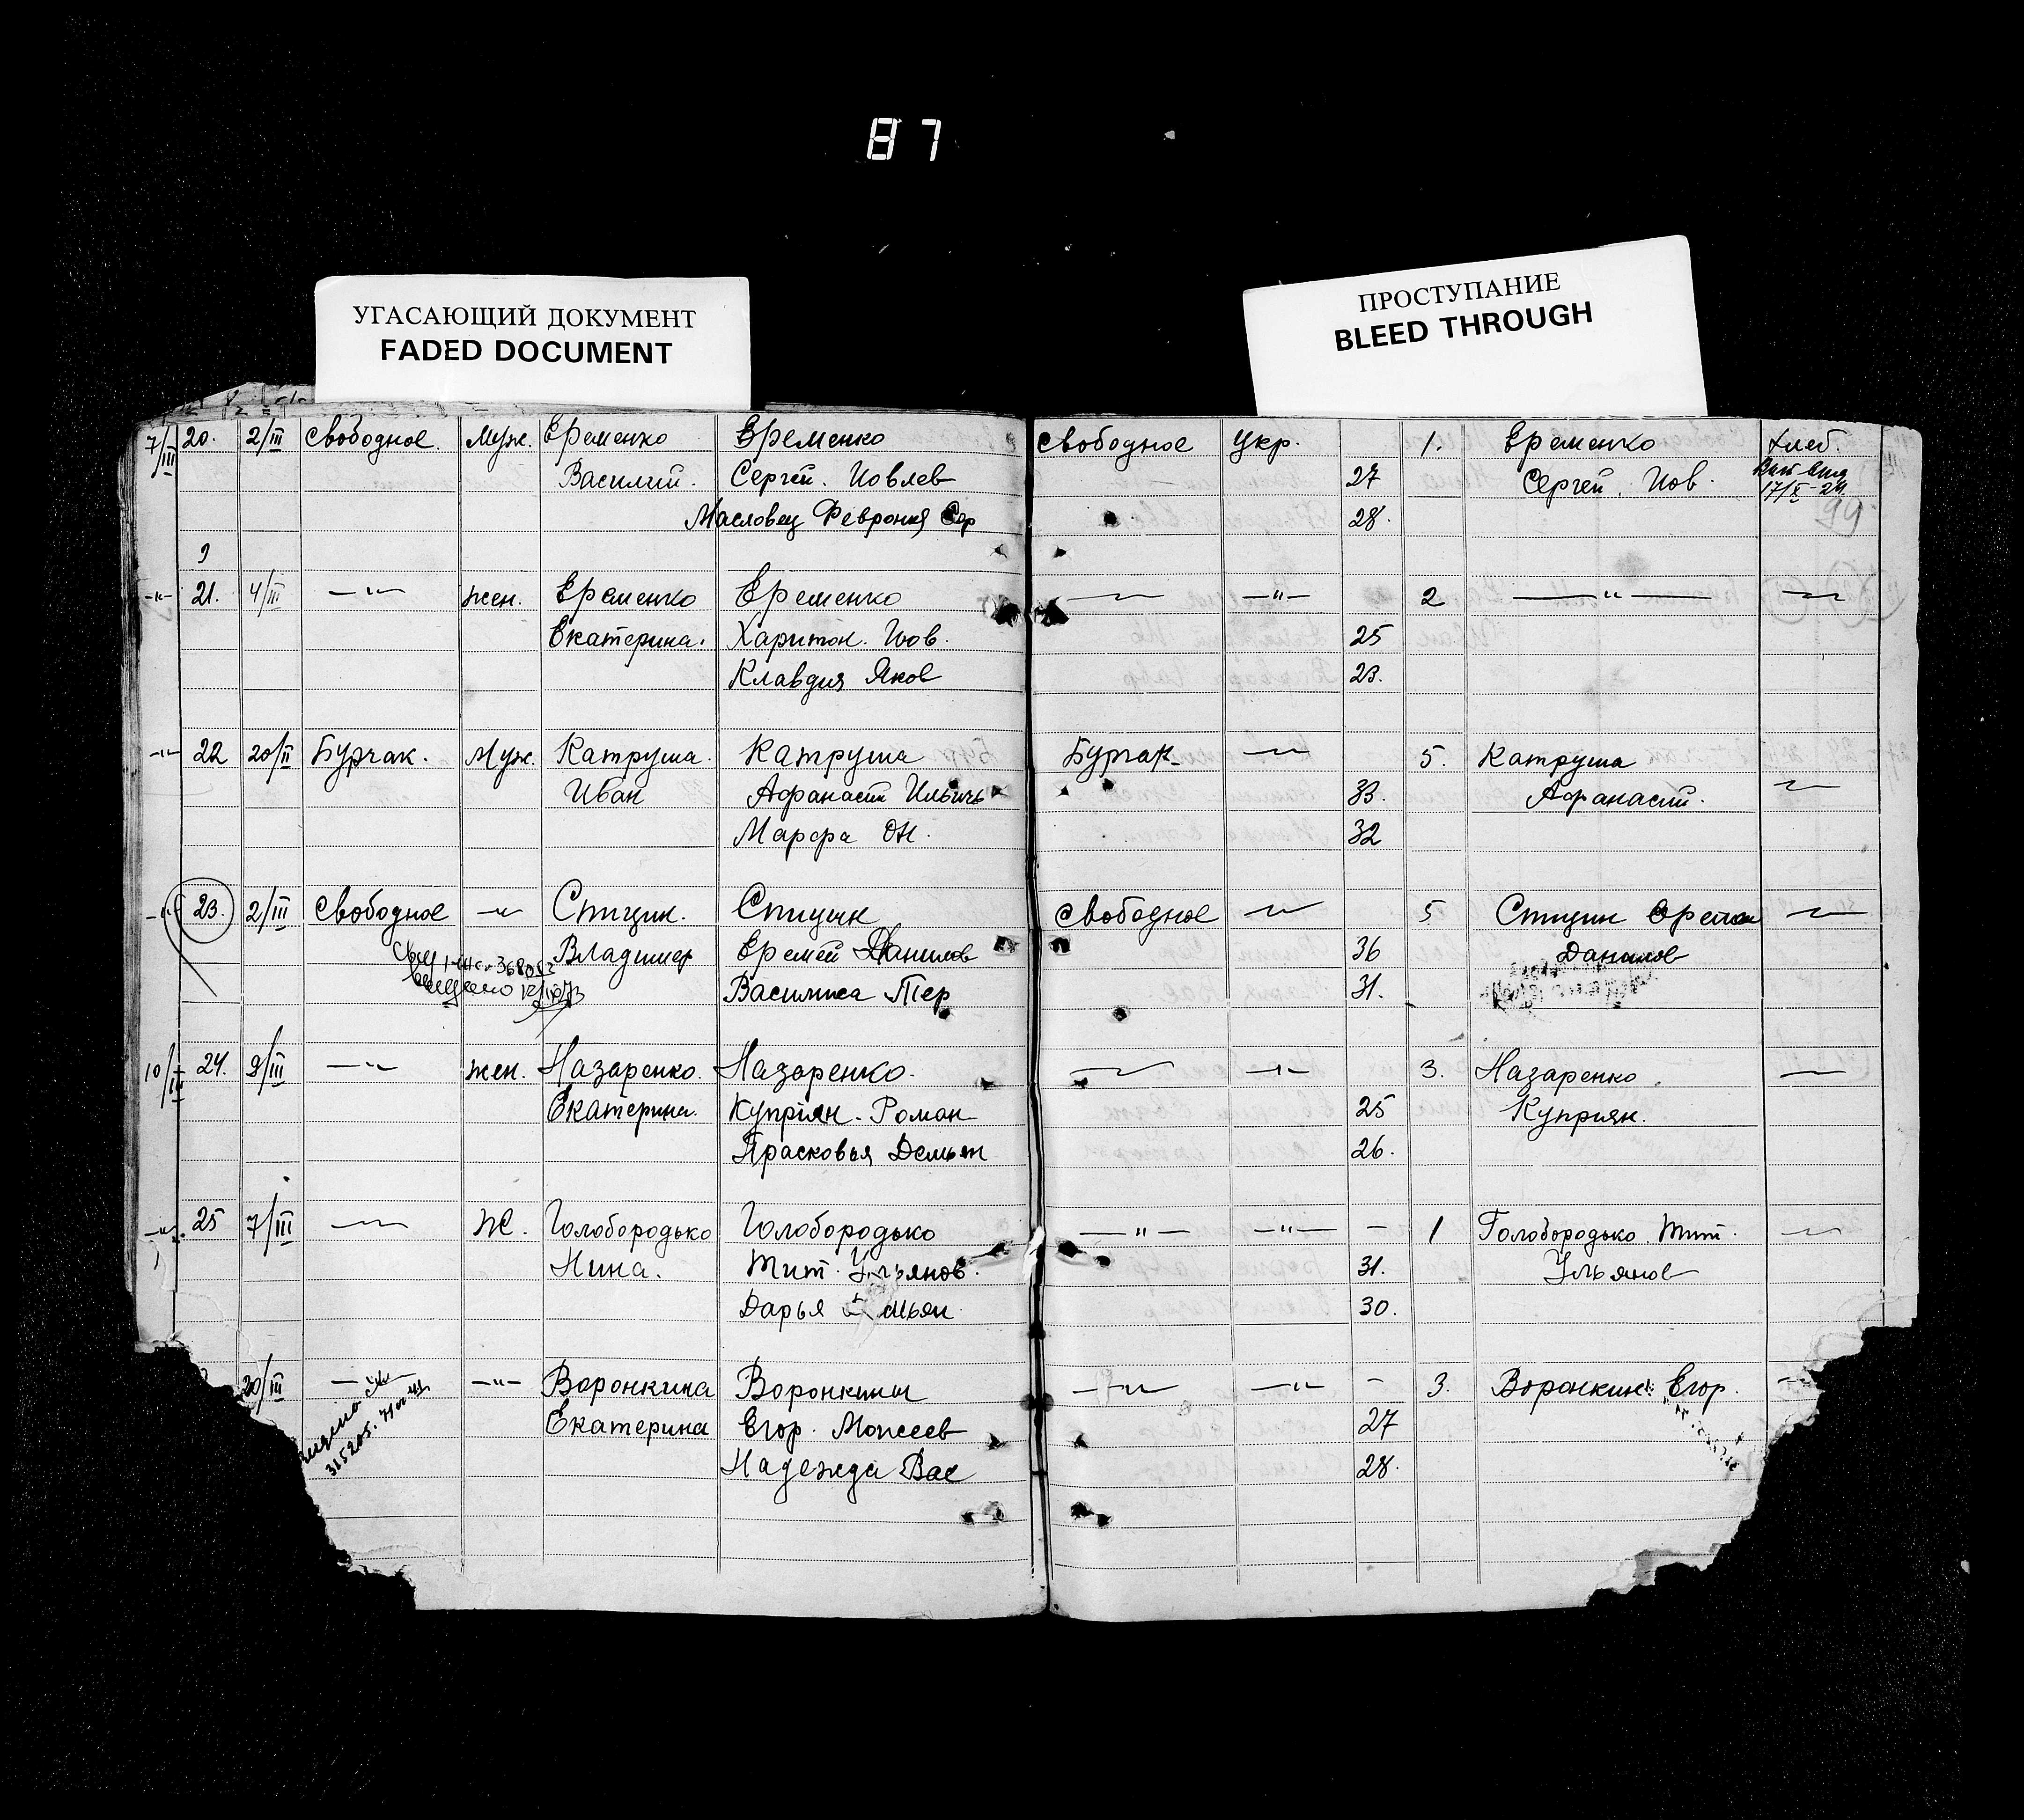 87
УГАСАЮЩИЙ ДОКУМЕНТ
FADED DOCUMENT
ПРОСТУПАНИЕ
BLEED THROUGH
7/III 20. 2/III Свободное. Муж. Еременко Еременко Свободное Укр. 1. Еременко хлеб.
Василий. Сергей. Иовлев 27 Сергей. Иов. 17/X-24
Масловец Феврония Сер 28. 99
9
-"- 21. 4/III -"- жен. Еременко Еременко -"- 2 -"-
Екатерина. Харитон. Иов. 25
Клавдия Яков 23.
-"- 22 20/II Бурчак. Муж. Катруша. Катруша Бурчак 5. Катруша
Иван Афанасий Ильичь 33. Афанасий.
Марфа ОН. 32
-"- 23. 2/III Свободное -"- Спицин. Спицин Свободное 5 Спицин
Владимер Еремей Данилов 36 Данилов
Василиса Тер 31.
10/III 24. 9/III -"- жен. Назаренко. Назаренко. 3. Назаренко
Екатерина. Куприян. Роман 25 Куприян.
Прасковья Демьян 26.
-"- 25 7/III Ж. Голобородько Голобородько -"- -"- - 1 Голобородько Тит.
Нина. Тит. Ульянов. 31. Ульянов
Дарья 30.
20/III -"- -"- Воронкина Воронкины -"- -"- - 3. Воронкин Егор.
Екатерина Егор. Моисеев 27
315205.
Надежда Вас 28.